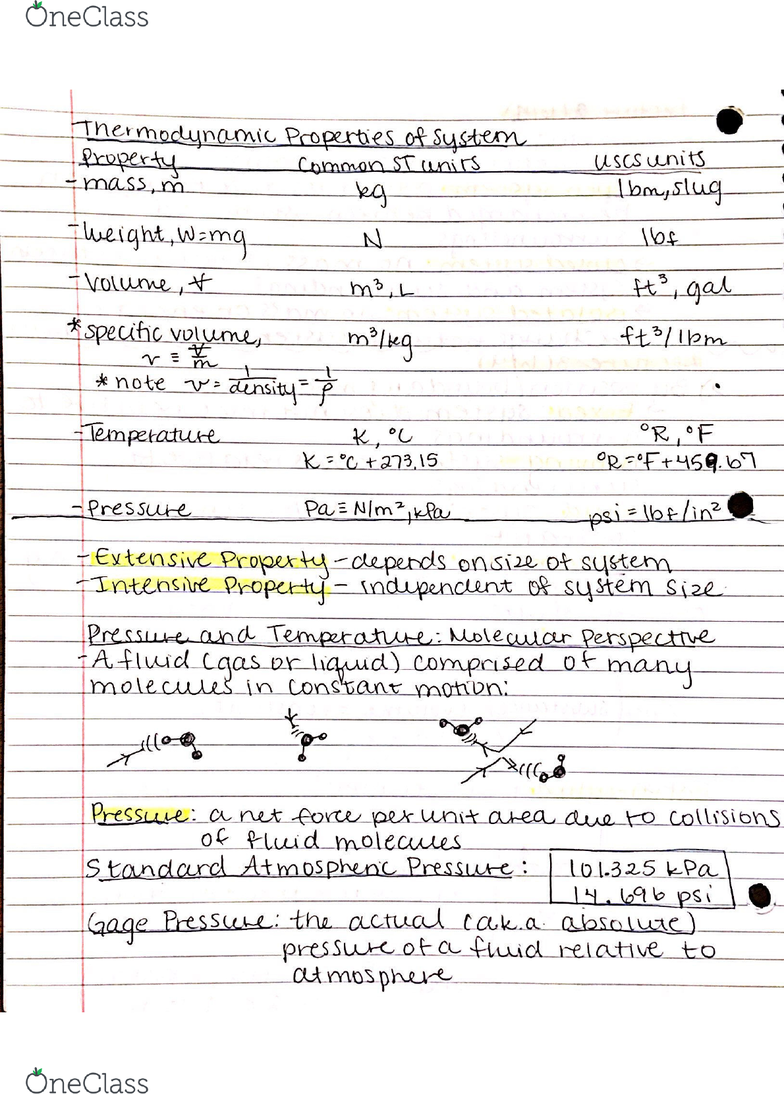 OneClass
Thermodynamic Properties of System
Property Common SI units USCS units
- mass, m kg lbm, slug
- Weight, W=mg N lbf
- Volume, V m³, L ft³, gal
* specific volume, m³/kg ft³/lbm
v ≡ V/m
* note v = 1/density = 1/ρ
- Temperature K, °C °R, °F
K = °C + 273.15 °R = °F + 459.67
- Pressure Pa ≡ N/m², kPa psi = lbf/in²
- Extensive Property - depends on size of system
- Intensive Property - independent of system size
Pressure and Temperature: Molecular Perspective
- A fluid (gas or liquid) comprised of many
molecules in constant motion:
Pressure: a net force per unit area due to collisions
of fluid molecules
Standard Atmospheric Pressure: 101.325 kPa
14.696 psi
Gage Pressure: the actual (a.k.a. absolute)
pressure of a fluid relative to
atmosphere
OneClass